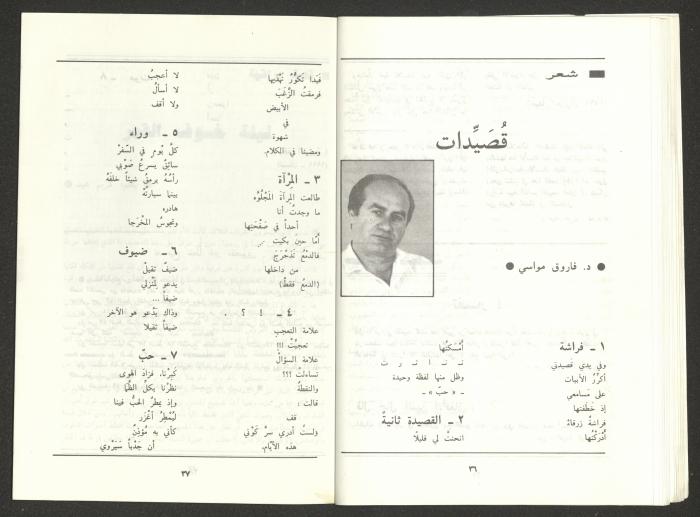 شعر
قُصَيِّدات
د. فاروق مواسي
١ ـ فراشة
وفي يدي قصيدتي
أكرِّرُ الأبيات
على مَسامعي
إذ خطَفتها
فراشةٌ زرقاءُ
أدْركْتُها
أمْسَكتُها
تـ نـ ا ثـ ر ت
وظل منها لفظة وحيدة
ـ « حبّ » ـ
٢ ـ القصيدة ثانيةً
انحنتْ لي قليلًا
٣٦
فَبَدا تَكوُّرُ نَهْدَيها
فرمقتُ الزَّغبَ
الأبيض
في
شهوة
ومضينا في الكلام.
٣ ـ المرْآة
طالعت المِرآةَ المَجْلُوَّه
ما وجدتُ أنا
أحداً في صَفْحَتِها
أمّا حين بكيت
فالدمْعُ تدَحْرَجَ
من داخلها
(الدمعُ فقطْ)
٤ ـ ! ؟ .
علامة التعجب
تعجبَّتْ !!!
علامة السؤالْ
تساءلتْ ؟؟؟
والنقطةُ
قالت :
قف
ولستُ أدري سرَّ كَوْني
هذه الأيّام.
لا أعجبُ
لا أسألُ
ولا أقف
٥ ـ وراء
كلَّ يْومٍ في السّفرْ
سائِقٌ يسرعُ صَوْبي
رأسُهُ يرمقُ شيئاً خلفَهُ
بينما سيارتُهْ
هادره
وتجوسُ المخْرَجا
٦ ـ ضيوف
ضيفٌ ثقيلْ
يدعو لِمَنْزلي
ضيفاً ...
وذاك يَدْعو هو الآخر
ضيفاً ثقيلا
٧ ـ حبّ
كَبِرْنا. فزادَ الهوى
نظرْنا بكلِّ الظَّما
وإذ يمطرُ الحبُّ فينا
ليُمْطِرُ أغْزَر
كأني به مُؤذِنٌ
أن جَدْباً سَيَرْوي
٣٧